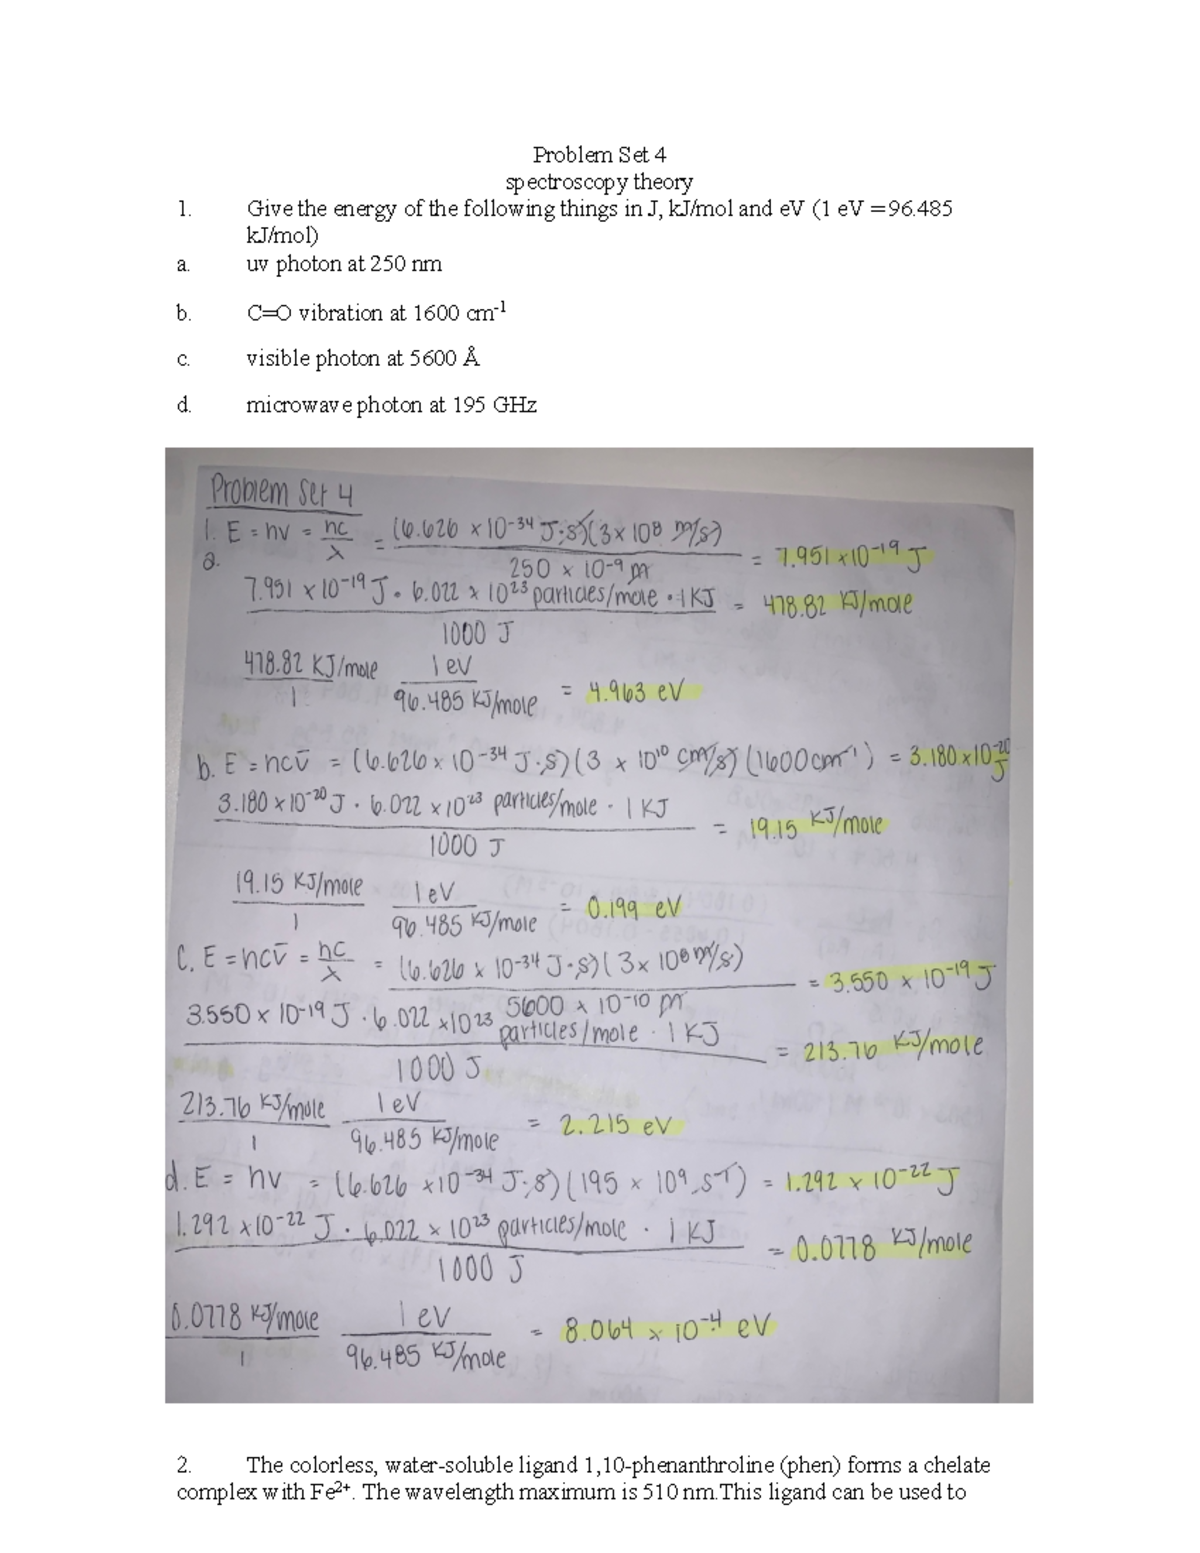 Problem Set 4
spectroscopy theory
1. Give the energy of the following things in J, kJ/mol and eV (1 eV =96.485
kJ/mol)
a. uv photon at 250 nm
b. C=O vibration at 1600 cm-1
c. visible photon at 5600 Å
d. microwave photon at 195 GHz
Problem Set 4
1. E = hν = hc/λ = (6.626 × 10-34 J·s)(3× 108 m/s) / 250 × 10-9 m = 7.951 ×10-19 J
a.
7.951 × 10-19 J · 6.022 × 1023 particles/mole · 1 KJ / 1000 J = 478.82 KJ/mole
478.82 KJ/mole / 1 1 eV / 96.485 KJ/mole = 4.963 eV
b. E = hcν̄ = (6.626 × 10-34 J·s)(3 × 1010 cm/s)(1600cm-1) = 3.180 ×10-20 J
3.180 ×10-20 J · 6.022 ×1023 particles/mole · 1 KJ / 1000 J = 19.15 KJ/mole
19.15 KJ/mole / 1 1 eV / 96.485 KJ/mole = 0.199 eV
C. E = hcν̄ = hc/λ = (6.626 × 10-34 J·s)(3× 108 m/s) / 5600 × 10-10 m = 3.550 × 10-19 J
3.550 × 10-19 J · 6.022 ×1023 particles/mole · 1 KJ / 1000 J = 213.76 KJ/mole
213.76 KJ/mole / 1 1 eV / 96.485 KJ/mole = 2.215 eV
d. E = hν = (6.626 ×10-34 J·s)(195 × 109 s-1) = 1.292 × 10-22 J
1.292 ×10-22 J · 6.022 × 1023 particles/mole · 1 KJ / 1000 J = 0.0778 KJ/mole
0.0778 KJ/mole / 1 1 eV / 96.485 KJ/mole = 8.064 × 10-4 eV
2. The colorless, water-soluble ligand 1,10-phenanthroline (phen) forms a chelate
complex with Fe2+. The wavelength maximum is 510 nm.This ligand can be used to